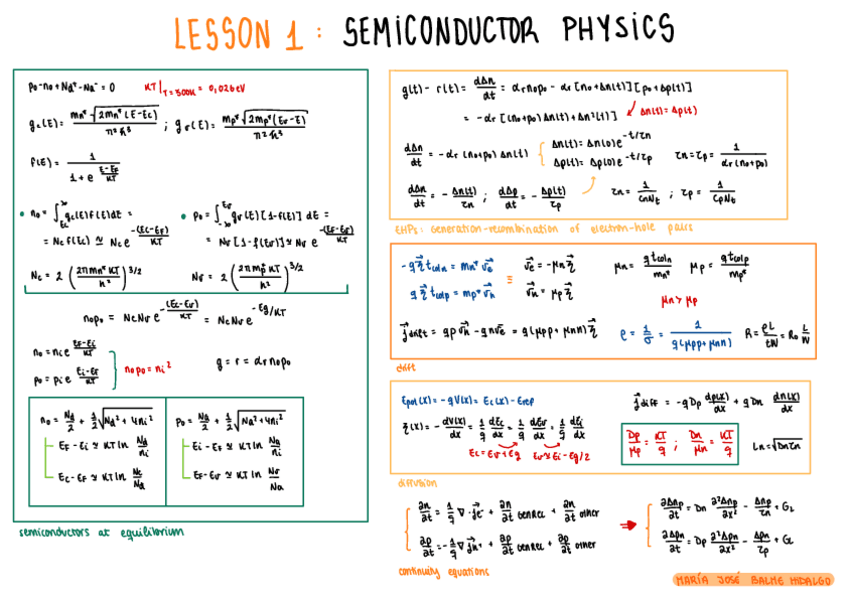 LESSON 1 : SEMICONDUCTOR PHYSICS
p₀-n₀+Nd⁺-Na⁻ = 0   KT|T=300K = 0,026eV
gc(E) = mn*√(2mn*(E-Ec)) / π²ħ³ ; gv(E) = mp*√(2mp*(Ev-E)) / π²ħ³
f(E) = 1 / (1 + e^((E-EF)/KT))
• n₀ = ∫_Ec^∞ gc(E)f(E)dE =   • p₀ = ∫_-∞^Ev gv(E)[1-f(E)] dE =
= Nc f(Ec) ≃ Nc e^(-(Ec-EF)/KT)   = Nv [1-f(Ev)] ≃ Nv e^(-(EF-Ev)/KT)
Nc = 2 (2πmn* KT / h²)^3/2   Nv = 2 (2πmp* KT / h²)^3/2
n₀p₀ = NcNv e^(-(Ec-Ev)/KT) = NcNv e^(-Eg/KT)
n₀ = ni e^((EF-Ei)/KT)
p₀ = pi e^((Ei-EF)/KT)   } n₀p₀ = ni²   g = r = αr n₀p₀
n₀ = Nd/2 + 1/2 √(Nd² + 4ni²)   p₀ = Na/2 + 1/2 √(Na² + 4ni²)
EF - Ei ≃ KT ln Nd/ni   Ei - EF ≃ KT ln Na/ni
Ec - EF ≃ KT ln Nc/Nd   EF - Ev ≃ KT ln Nv/Na
semiconductors at equilibrium
g(t) - r(t) = dΔn/dt = αr n₀p₀ - αr [n₀+Δn(t)][p₀+Δp(t)]
= -αr [(n₀+p₀) Δn(t) + Δn²(t)]   Δn(t) = Δp(t)
dΔn/dt = -αr (n₀+p₀) Δn(t)   { Δn(t) = Δn(0)e^(-t/τn)
Δp(t) = Δp(0)e^(-t/τp)   τn = τp = 1 / αr(n₀+p₀)
dΔn/dt = -Δn(t)/τn ; dΔp/dt = -Δp(t)/τp   τn = 1/CnNt ; τp = 1/CpNt
EHPs: generation-recombination of electron-hole pairs
-q ξ⃗ tcoln = mn* v⃗e ≡ v⃗e = -μn ξ⃗   μn = q tcoln / mn*   μp = q tcolp / mp*
q ξ⃗ tcolp = mp* v⃗h   v⃗h = μp ξ⃗   μn > μp
j⃗drift = qp v⃗h - qn v⃗e = q(μp p + μn n) ξ⃗   ρ = 1/σ = 1 / q(μp p + μn n)   R = ρL/tW = R₀ L/W
drift
Epot(x) = -qV(x) = Ec(x) - Eref   j⃗diff = -qDp dp(x)/dx + qDn dn(x)/dx
ξ(x) = -dV(x)/dx = 1/q dEc/dx = 1/q dEv/dx = 1/q dEi/dx   Dp/μp = KT/q ; Dn/μn = KT/q   Ln = √(Dnτn)
Ec = Ev + Eg   Ev ≃ Ei - Eg/2
diffusion
∂n/∂t = 1/q ∇·j⃗e + ∂n/∂t genrec + ∂n/∂t other   ∂Δnp/∂t = Dn ∂²Δnp/∂x² - Δnp/τn + GL
∂p/∂t = -1/q ∇·j⃗h + ∂p/∂t genrec + ∂p/∂t other   ∂Δpn/∂t = Dp ∂²Δpn/∂x² - Δpn/τp + GL
continuity equations
MARÍA JOSÉ BALME HIDALGO